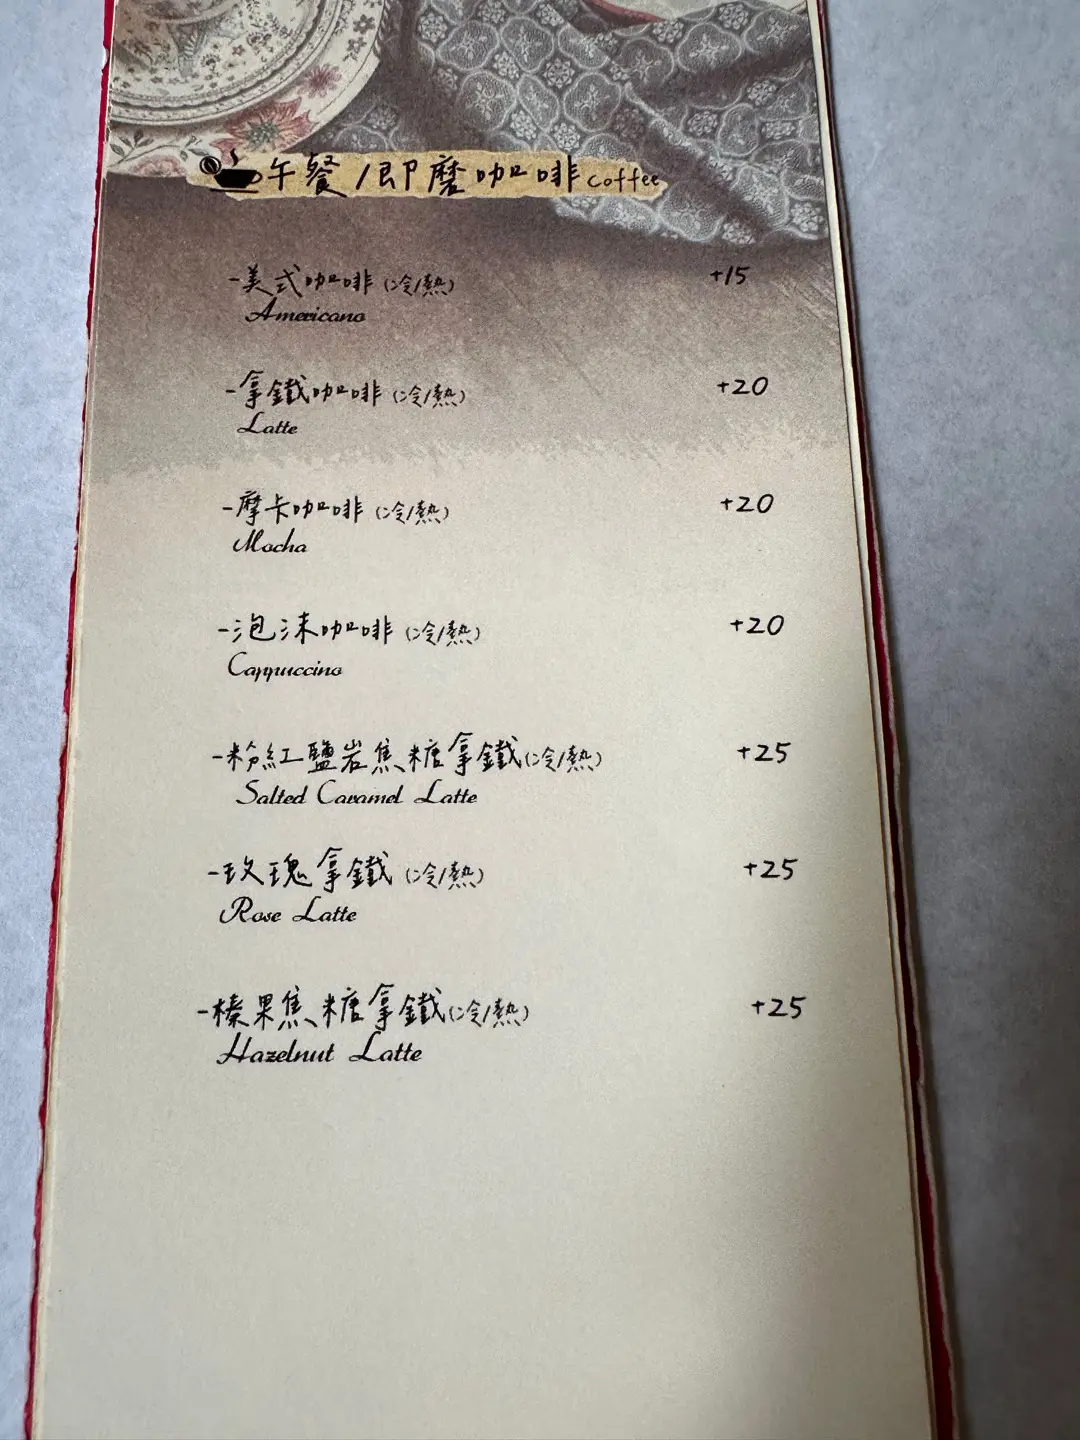 午餐/即磨咖啡 coffee
-美式咖啡(冷/熱) +15
Americano
-拿鐵咖啡(冷/熱) +20
Latte
-摩卡咖啡(冷/熱) +20
Mocha
-泡沫咖啡(冷/熱) +20
Cappuccino
-粉紅鹽岩焦糖拿鐵(冷/熱) +25
Salted Caramel Latte
-玫瑰拿鐵(冷/熱) +25
Rose Latte
-榛果焦糖拿鐵(冷/熱) +25
Hazelnut Latte